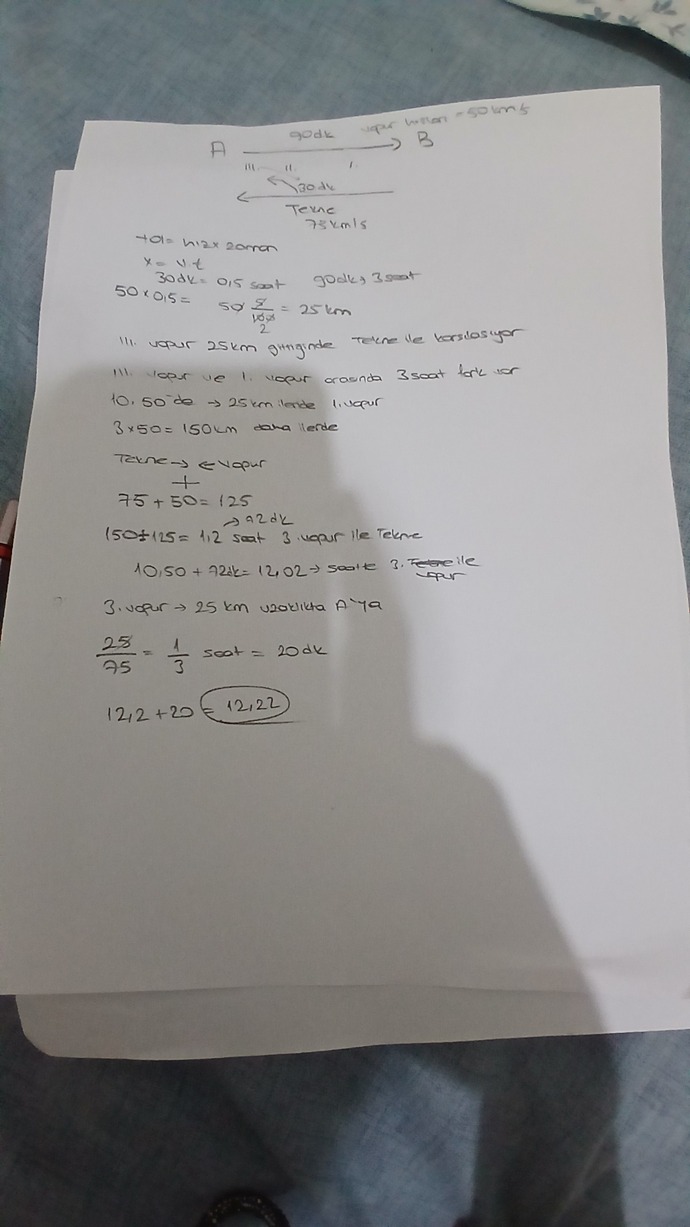 90dk vapur hızları = 50km/s
A → B
III. II. I.
30dk
Tekne
75km/s
Yol = hız x zaman
x = v.t
30dk = 0,5 saat 90dk → 3 saat
50 x 0,5 = 50 5/10 2 = 25km
III. vapur 25km gittiğinde Tekne ile karşılaşıyor
III. vapur ve I. vapur arasında 3 saat fark var
10.50'de → 25km ilerde 1. vapur
3 x 50 = 150km daha ilerde
Tekne → ← vapur
+
75 + 50 = 125
→ 72dk
150 ÷ 125 = 1,2 saat 3. vapur ile Tekne
10,50 + 72dk = 12,02 → saatte 3. Tekne ile
vapur
3. vapur → 25 km uzaklıkta A'ya
25/75 = 1/3 saat = 20dk
12,2 + 20 = 12,22